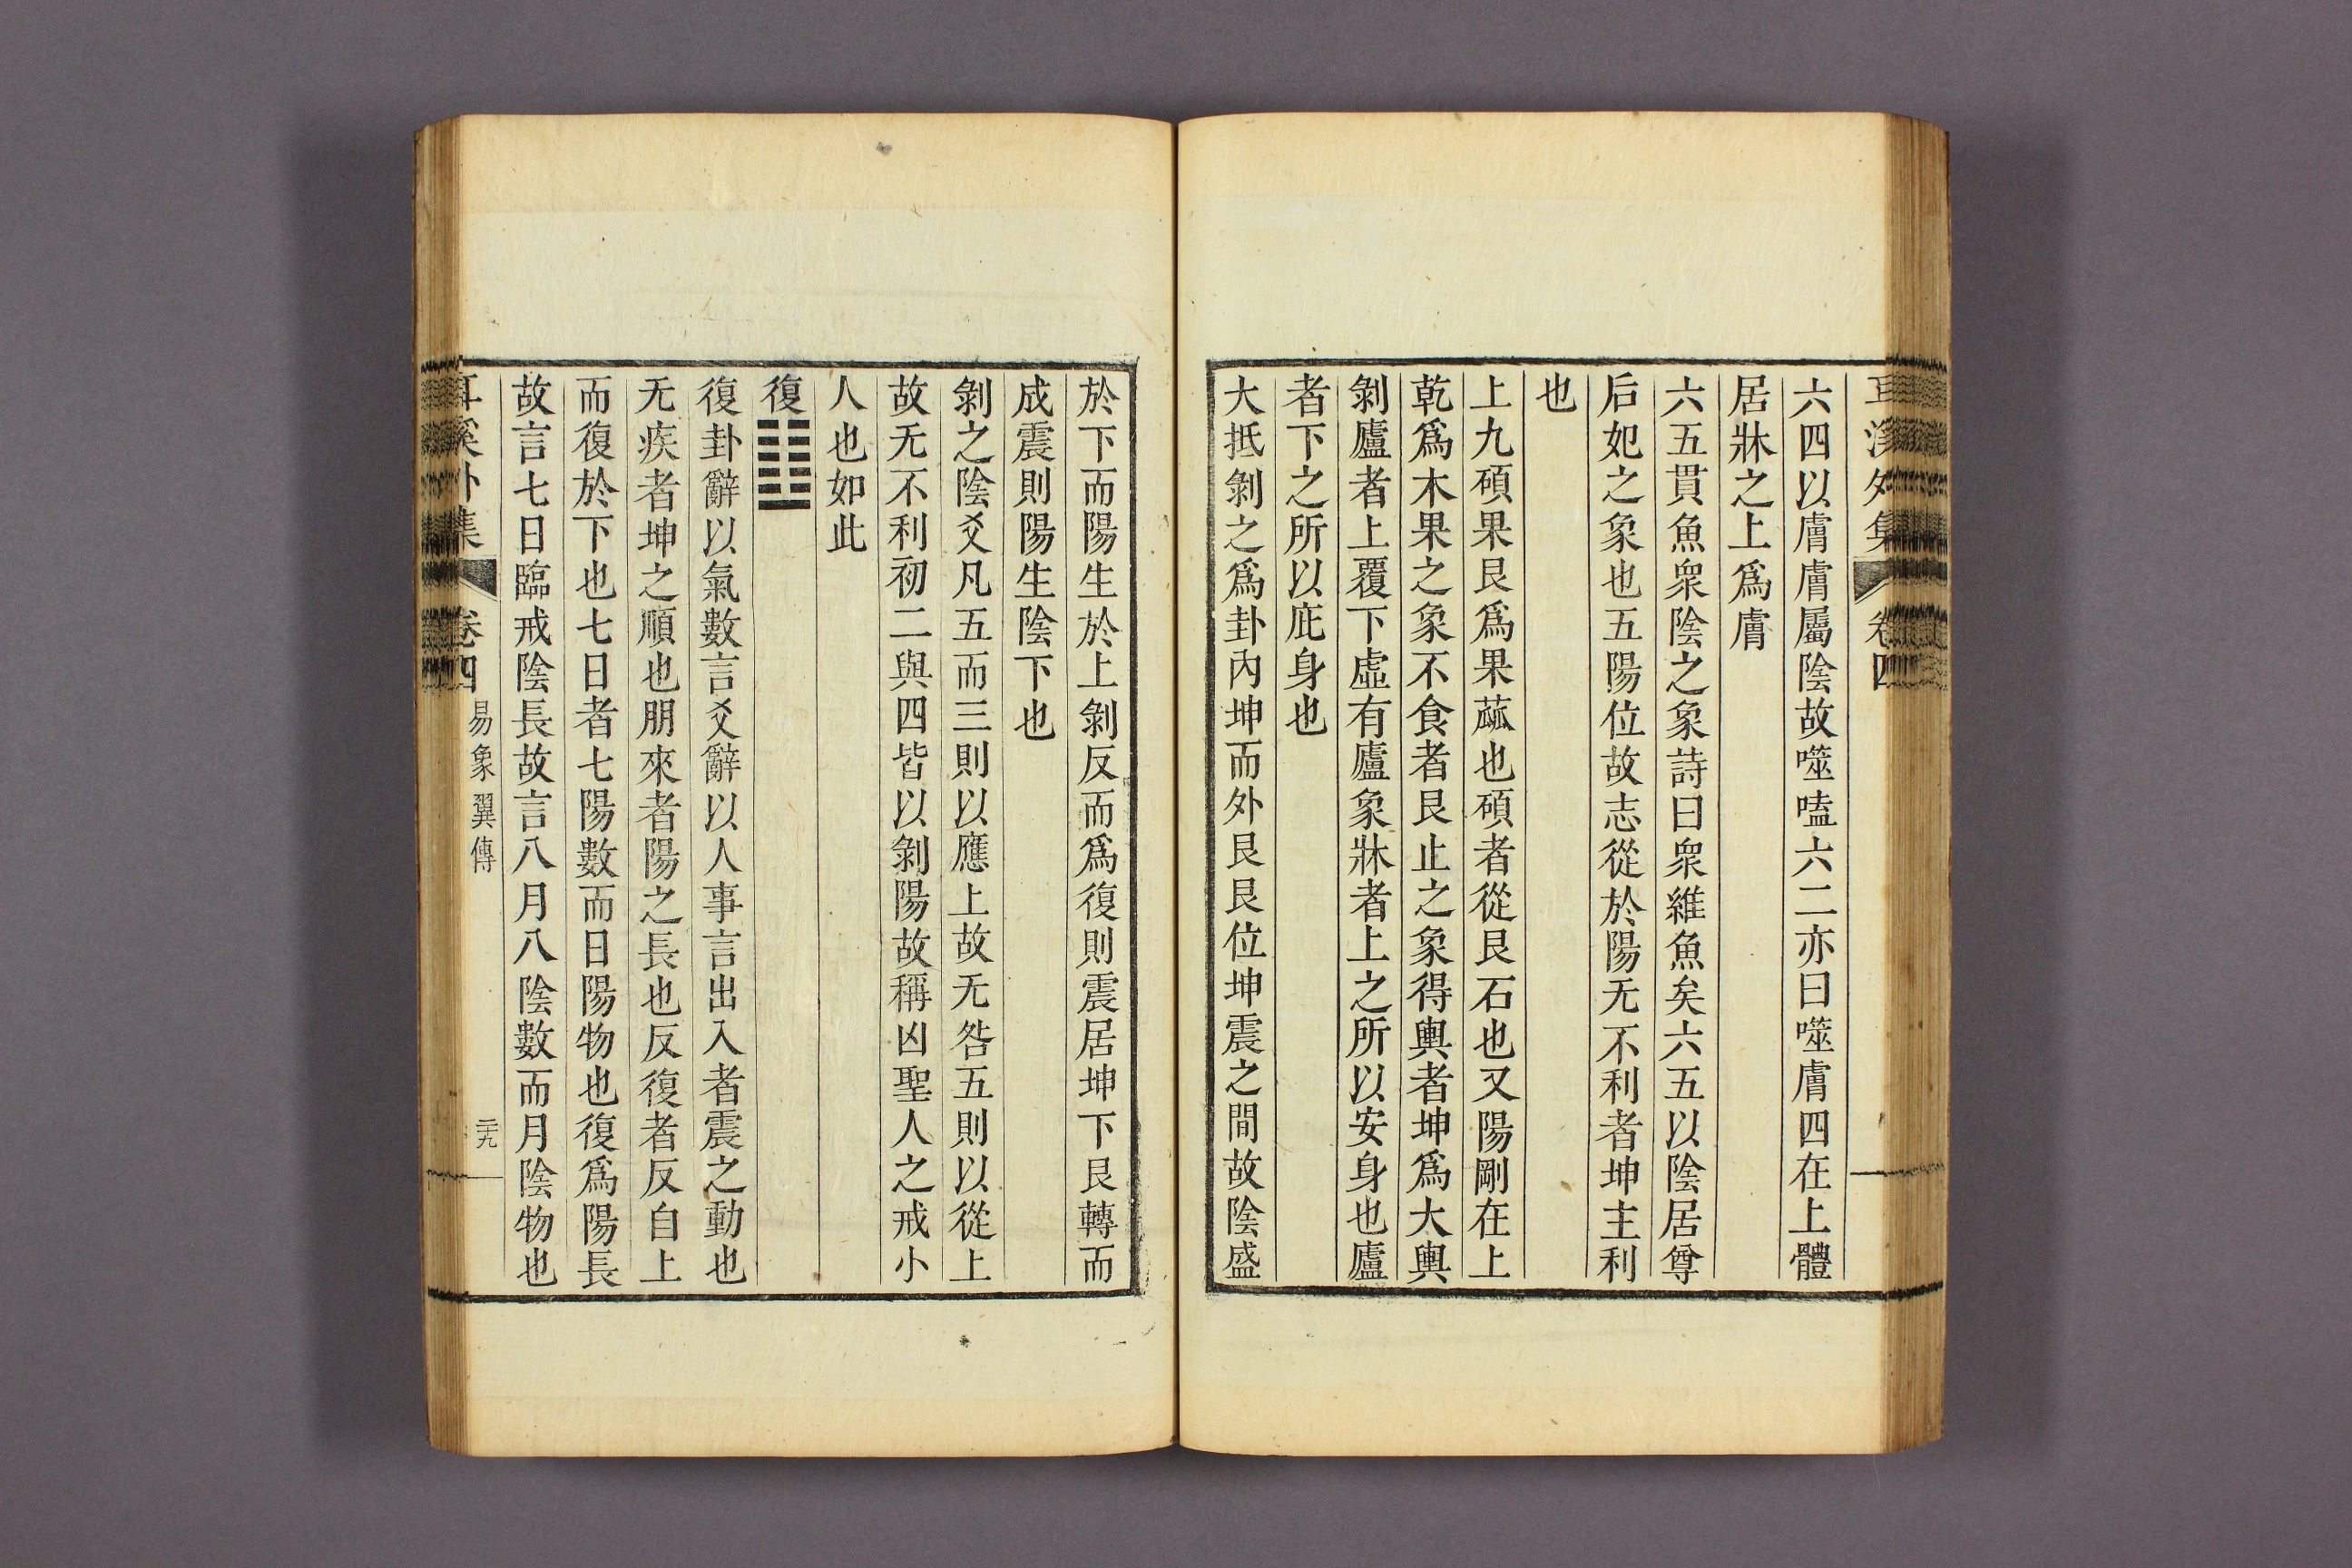 耳溪外集 卷四
六四以膚膚屬陰故噬嗑六二亦曰噬膚四在上體
居牀之上爲膚
六五貫魚衆陰之象詩曰衆維魚矣六五以陰居尊
后妃之象也五陽位故志從於陽无不利者坤主利
也
上九碩果艮爲果蓏也碩者從艮石也又陽剛在上
乾爲木果之象不食者艮止之象得輿者坤爲大輿
剝廬者上覆下虛有廬象牀者上之所以安身也廬
者下之所以庇身也
大抵剝之爲卦內坤而外艮艮位坤震之間故陰盛
於下而陽生於上剝反而爲復則震居坤下艮轉而
成震則陽生陰下也
剝之陰爻凡五而三則以應上故无咎五則以從上
故无不利初二與四皆以剝陽故稱凶聖人之戒小
人也如此
復䷗
復卦辭以氣數言爻辭以人事言出入者震之動也
无疾者坤之順也朋來者陽之長也反復者反自上
而復於下也七日者七陽數而日陽物也復爲陽長
故言七日臨戒陰長故言八月八陰數而月陰物也
耳溪外集 卷四 易象翼傳 二十九